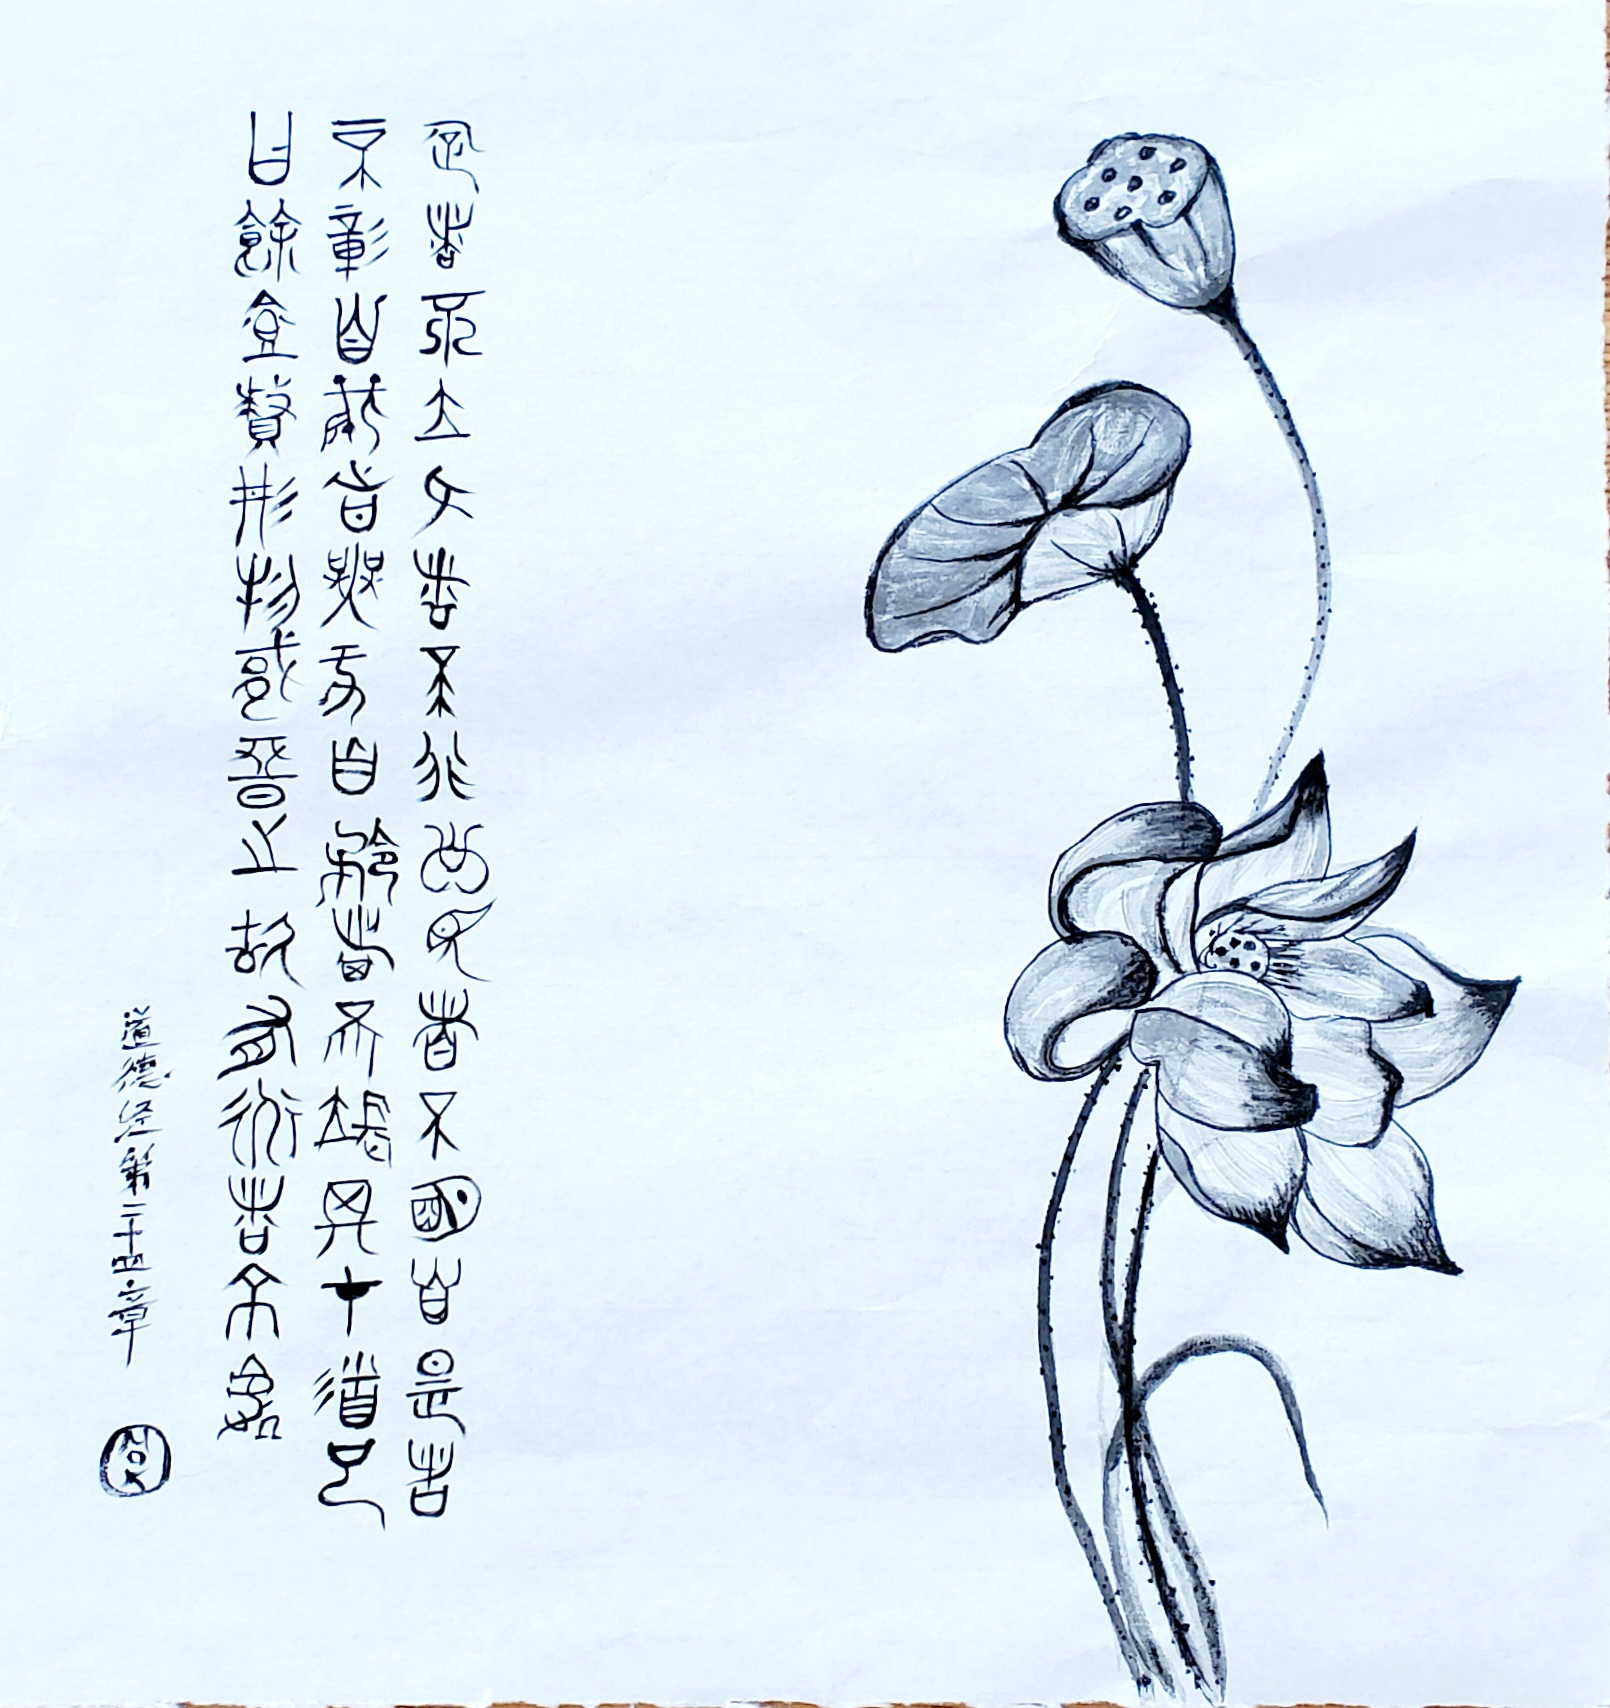 企者不立跨者不行自見者不明自是者
不彰自伐者無功自矜者不長其在道也
曰餘食贅形物或惡之故有道者不處
道德经第二十四章